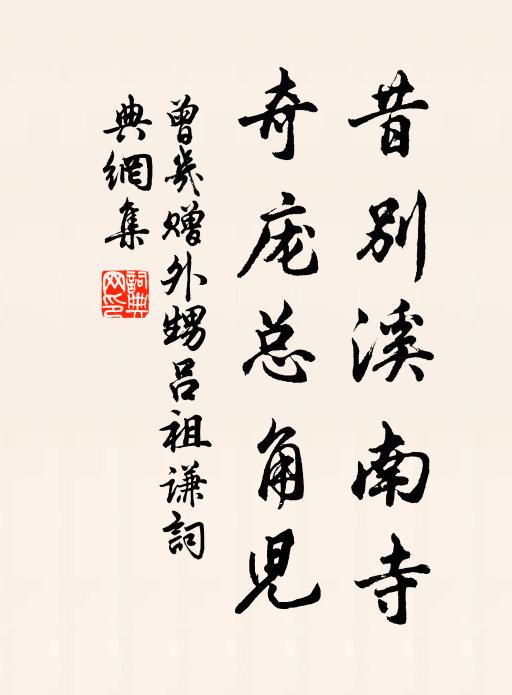 昔别溪南寺
奇庞总角児
曾幾贈外甥吕祖谦詞
典網集
詞典網印